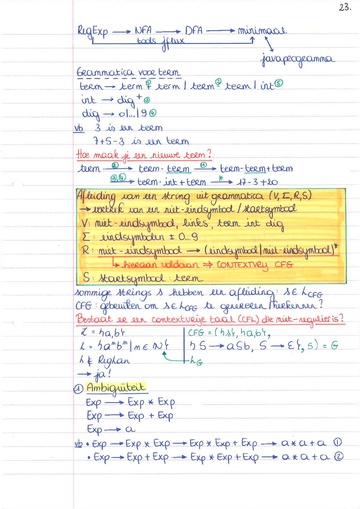 23.
RegExp → NFA → DFA → minimaal
tools jflux
java programma
Grammatica voor term
term → term + term | term - term | int
int → dig +
dig → 0|...|9
vb 3 is een term
7+5-3 is een term
Hoe maak je een nieuwe term?
term → term - term → term - term + term
→ term - int + term → 17-3+20
Afleiding van een string uit grammatica (V, Σ, R, S)
→ vertrek van een niet-eindsymbool / startsymbool
V: niet-eindsymbool, links, term int dig
Σ: eindsymbolen ± 0-9
R: niet-eindsymbool → (eindsymbool/niet-eindsymbool)*
↳ hieraan voldaan ⇒ CONTEXTVRIJ CFG
S: startsymbool: term
sommige strings s hebben een afleiding: s ∈ L_CFG
CFG: gebruiken om s ∈ L_CFG te genereren/herkennen?
Bestaat er een contextvrije taal (CFL) die niet-regulier is?
Σ = {a,b}
CFG = ({S}, {a,b},
L = {aⁿbⁿ | n ∈ ℕ}
{S → aSb, S → ε}, S) = G
L ∉ RegLan
L_G
→ ja!
① Ambiguïteit
Exp → Exp * Exp
Exp → Exp + Exp
Exp → a
vb • Exp → Exp * Exp → Exp * Exp + Exp → a * a + a ①
• Exp → Exp + Exp → Exp * Exp + Exp → a * a + a ②